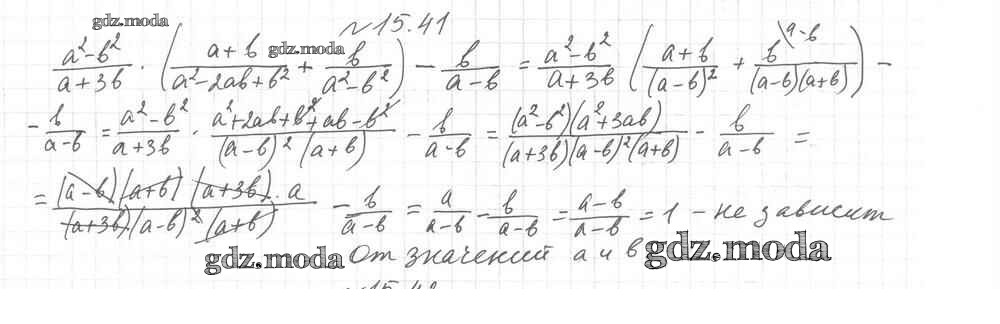 gdz.moda
№15.41
(a²-b²)/(a+3b) · ((a+b)/(a²-2ab+b²) + b/(a²-b²)) - b/(a-b) = (a²-b²)/(a+3b) ((a+b)/(a-b)² + b\a-b/((a-b)(a+b))) -
gdz.moda
- b/(a-b) = (a²-b²)/(a+3b) · (a²+2ab+b²+ab-b²)/((a-b)²(a+b)) - b/(a-b) = ((a²-b²)(a²+3ab))/((a+3b)(a-b)²(a+b)) - b/(a-b) =
= ((a-b)(a+b)(a+3b)·a)/((a+3b)(a-b)²(a+b)) - b/(a-b) = a/(a-b) - b/(a-b) = (a-b)/(a-b) = 1 - не зависит
gdz.moda От значений a и b gdz.moda